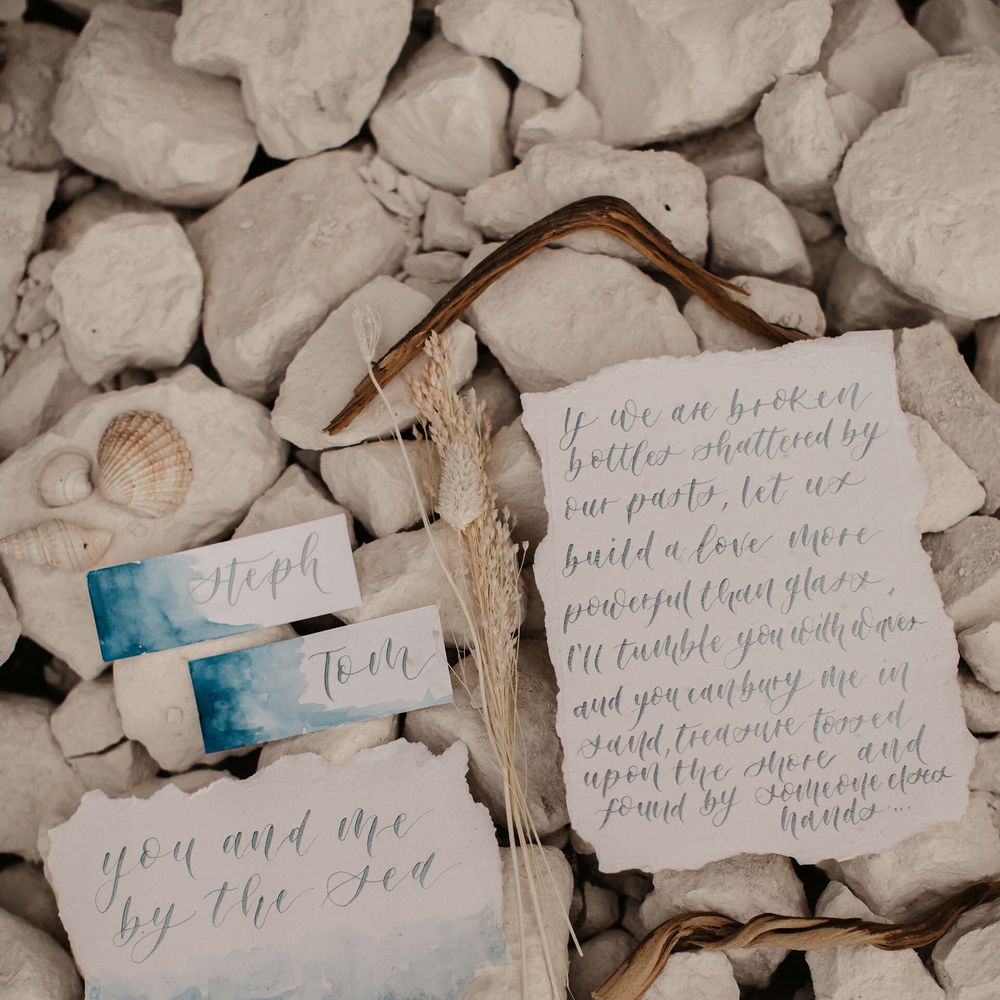 If we are broken
bottles shattered by
our pasts, let us
build a love more
powerful than glass,
I'll tumble you with waves
and you can bury me in
sand, treasure tossed
upon the shore and
found by someone elses
hands...
steph
Tom
you and me
by the sea